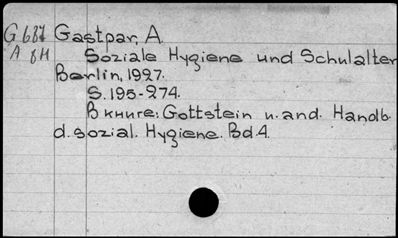 G 687 Gastpar, A.
A 8H Soziale Hygiene und Schulalter
Berlin, 1927.
S. 195-274.
В книге: Gottstein u. and. Handb.
d. sozial. Hygiene. Bd. 4.